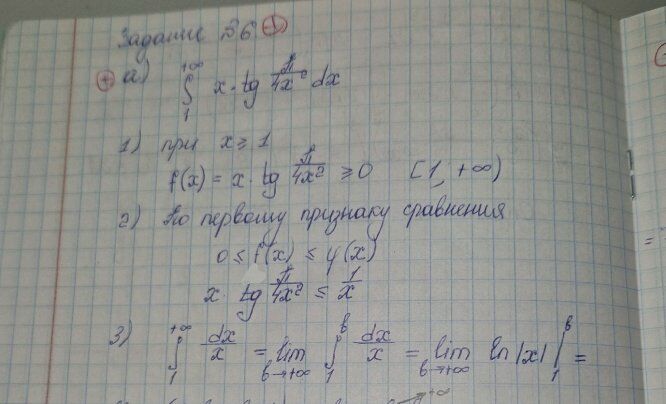 Задание В6 +
+ а) ∫₁^{+∞} x·tg π/4x² dx
1) при x ≥ 1
f(x) = x·tg π/4x² ≥ 0 [1, +∞)
2) По первому признаку сравнения
0 ≤ f(x) ≤ φ(x)
x·tg π/4x² ≤ 1/x
3) ∫₁^{+∞} dx/x = lim_{b→+∞} ∫₁^b dx/x = lim_{b→+∞} ln|x| |₁^b =